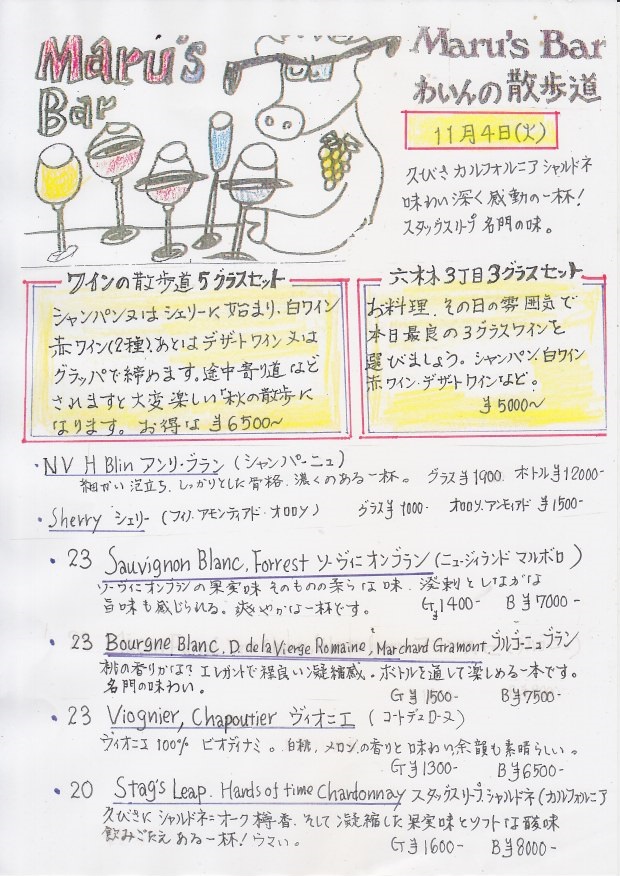 Maru's
Bar
Maru's Bar
わいんの散歩道
11月4日(火)
久びさ カルフォルニア シャルドネ
味わい深く感動の一杯!
スタッグスリープ 名門の味。
ワインの散歩道5グラスセット
シャンパン又はシェリーに始まり、白ワイン
赤ワイン(2種)、あとはデザートワイン又は
グラッパで締めます。途中寄り道など
されますと大変楽しい「秋の散歩」に
なります。 お得な ¥6500〜
六本木3丁目3グラスセット
お料理、その日の雰囲気で
本日最良の3グラスワインを
選びましょう。シャンパン、白ワイン
赤ワイン・デザートワインなど。
¥5000〜
・NV H Blin アンリ・ブラン (シャンパーニュ)
細かい泡立ち、しっかりとした骨格、濃くのある一杯。 グラス¥1900. ボトル¥12000-
・Sherry シェリー (フィノ・アモンティアド・オロロソ) グラス¥1000- オロロソ、アモンティアド ¥1500-
・23 Sauvignon Blanc, Forrest ソーヴィニオンブラン (ニュージィランド マルボロ)
ソーヴィニオンブランの果実味そのものの柔らかな味、溌剌としながな
旨味も感じられる。爽やかな一杯です。 G¥1400- B¥7000-
・23 Bourgne Blanc, D. de la Vierge Romaine, Marchard Gramont ブルゴーニュブラン
桃の香りかな?エレガントで程良い凝縮感。ボトルを通して楽しめる一本です。
名門の味わい。 G¥1500- B¥7500-
・23 Viognier, Chapoutier ヴィオニエ (コートデュローヌ)
ヴィオニエ 100% ビオディナミ。白桃、メロンの香りと味わい、余韻も素晴らしい。
G¥1300- B¥6500-
・20 Stag's Leap. Hands of time Chardonnay スタッグスリープシャルドネ (カルフォルニア
久びさにシャルドネ=オーク樽香、そして凝縮した果実味とソフトな酸味
飲みごたえある一杯!うまい。 G¥1600- B¥8000-